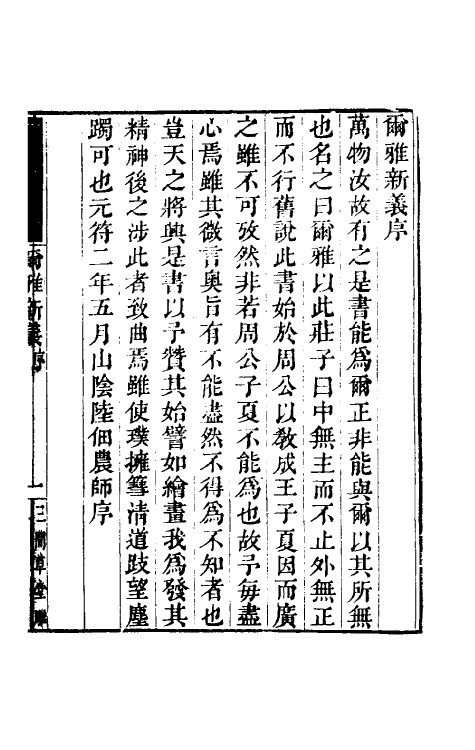 爾雅新義序
萬物汝故有之是書能爲爾正非能與爾以其所無
也名之曰爾雅以此莊子曰中無主而不止外無正
而不行舊說此書始於周公以教成王子夏因而廣
之雖不可攷然非若周公子夏不能爲也故予每盡
心焉雖其微言奥旨有不能盡然不得爲不知者也
豈天之將興是書以予贊其始譬如繪畫我爲發其
精神後之涉此者致曲焉雖使璞擁篲清道跂望塵
躅可也元符二年五月山陰陸佃農師序
爾雅新義序
一
三閒草堂雕